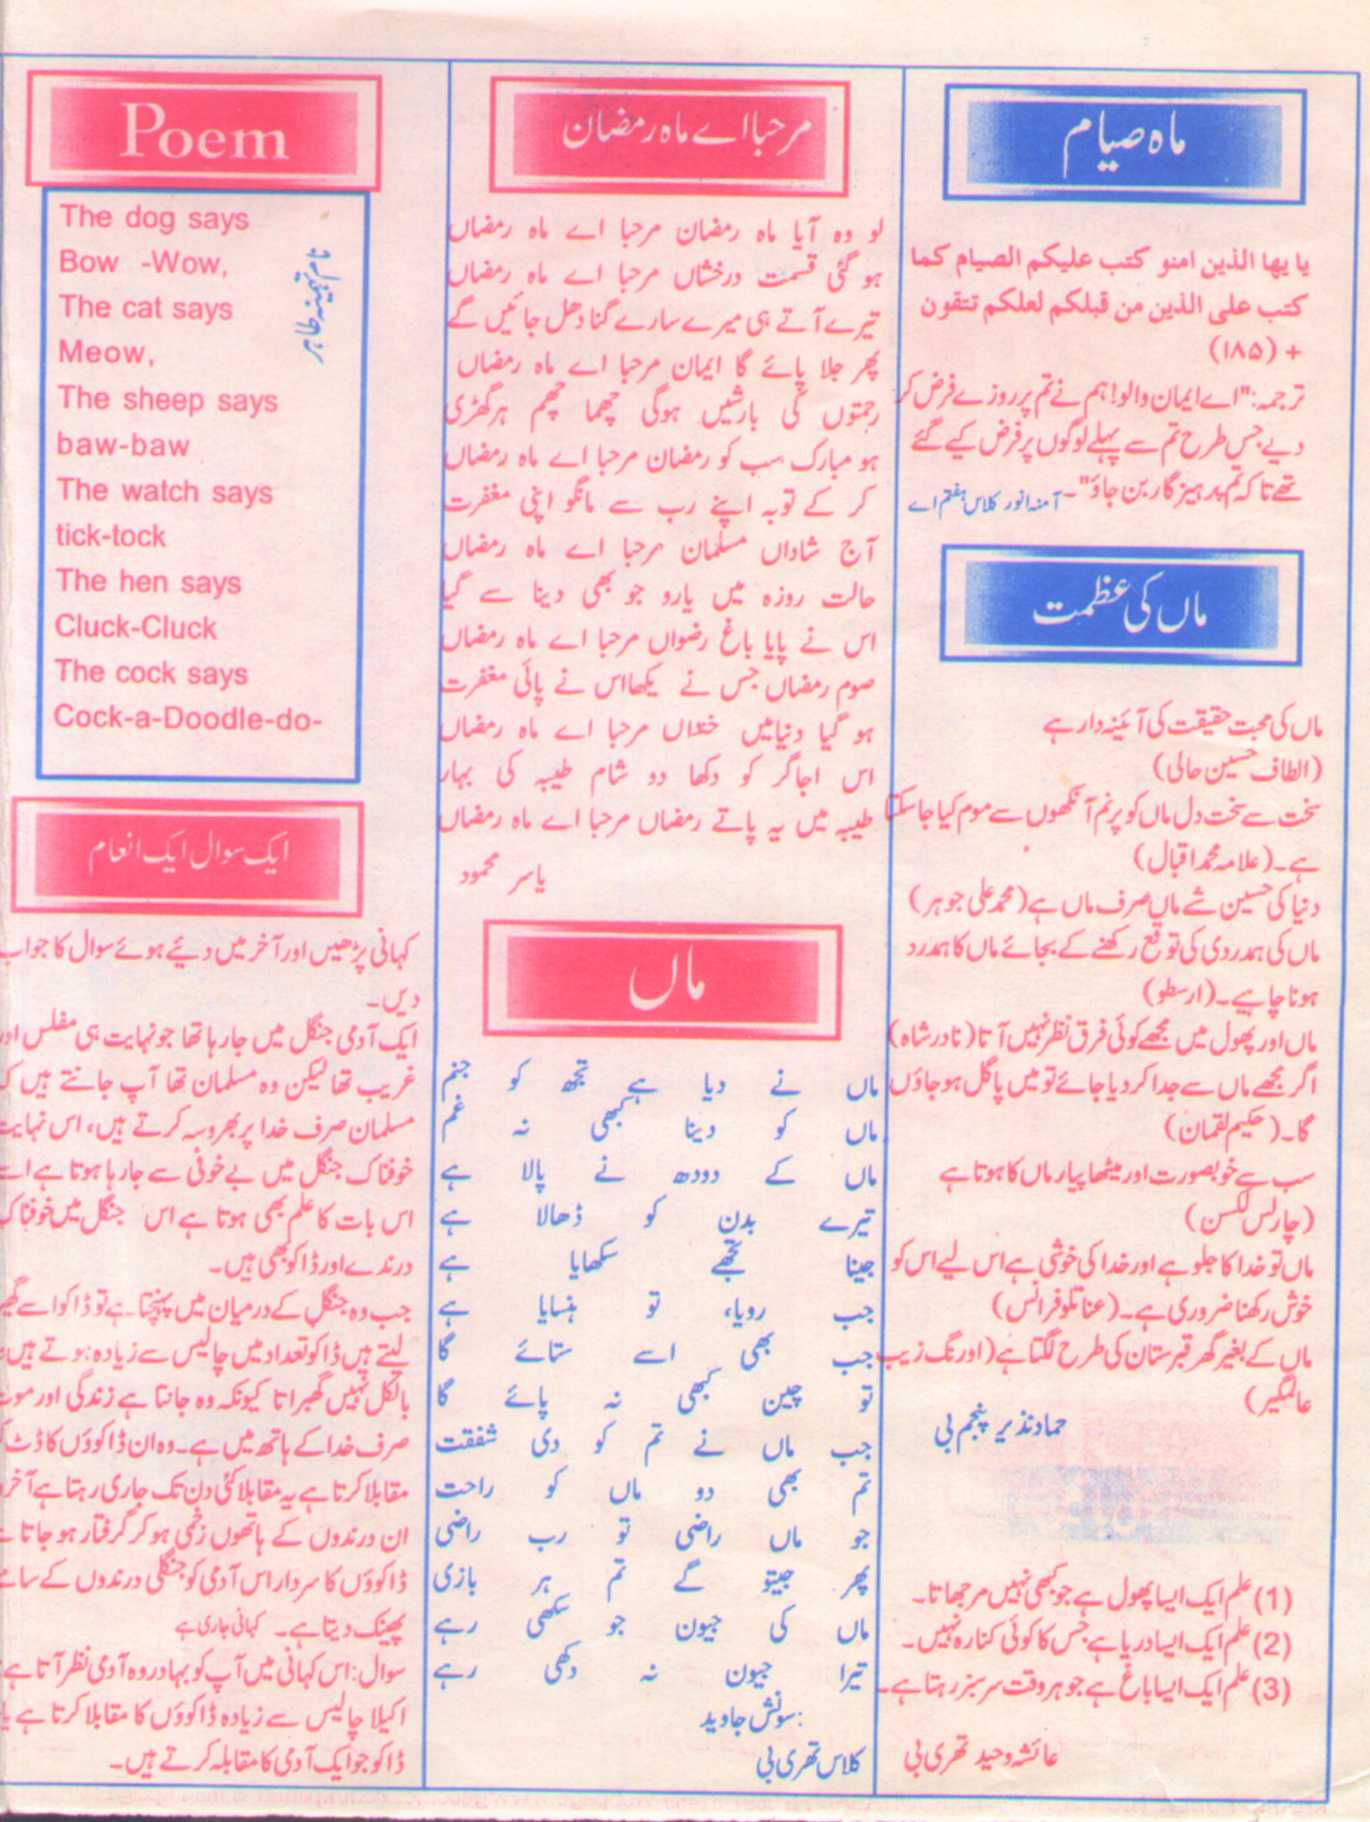 ماہ صیام
یا یھا الذین امنو کتب علیکم الصیام کما
کتب علی الذین من قبلکم لعلکم تتقون
+ (۱۸۵)
ترجمہ:"اے ایمان والو! ہم نے تم پر روزے فرض کر
دیے جس طرح تم سے پہلے لوگوں پر فرض کیے گئے
تھے تا کہ تم پرہیز گار بن جاؤ"۔ آمنہ انور کلاس ہفتم اے
ماں کی عظمت
ماں کی محبت حقیقت کی آئینہ دار ہے
(الطاف حسین حالی)
سخت سے سخت دل ماں کو پرنم آنکھوں سے موم کیا جاسکتا
ہے۔ (علامہ محمد اقبال)
دنیا کی حسین شے ماں صرف ماں ہے (محمد علی جوہر)
ماں کی ہمدردی کی توقع رکھنے کے بجائے ماں کا ہمدرد
ہونا چاہیے۔ (ارسطو)
ماں اور پھول میں مجھے کوئی فرق نظر نہیں آتا (نادر شاہ)
اگر مجھے ماں سے جدا کردیا جائے تو میں پاگل ہو جاؤں
گا۔ (حکیم لقمان)
سب سے خوبصورت اور میٹھا پیار ماں کا ہوتا ہے
(چارلس لکسن)
ماں تو خدا کا جلو ہے اور خدا کی خوشی ہے اس لیے اس کو
خوش رکھنا ضروری ہے۔ (عناتلو فرانس)
ماں کے بغیر گھر قبرستان کی طرح لگتا ہے (اورنگ زیب
عالمگیر)
حماد نذیر پنجم بی
(1) علم ایک ایسا پھول ہے جو کبھی نہیں مرجھاتا۔
(2) علم ایک ایسا دریا ہے جس کا کوئی کنارہ نہیں۔
(3) علم ایک ایسا باغ ہے جو ہر وقت سرسبز رہتا ہے۔
عائشہ وحید تھری بی
مرحبا اے ماہ رمضان
لو وہ آیا ماہ رمضان مرحبا اے ماہ رمضاں
ہو گئی قسمت درخشاں مرحبا اے ماہ رمضاں
تیرے آتے ہی میرے سارے گنا دھل جائیں گے
پھر جلا پائے گا ایمان مرحبا اے ماہ رمضاں
رحمتوں کی بارشیں ہوگی چھما چھم ہر گھڑی
ہو مبارک سب کو رمضان مرحبا اے ماہ رمضاں
کر کے توبہ اپنے رب سے مانگو اپنی مغفرت
آج شاداں مسلمان مرحبا اے ماہ رمضاں
حالت روزہ میں یارو جو بھی دینا سے گیا
اس نے پایا باغ رضواں مرحبا اے ماہ رمضاں
صوم رمضاں جس نے یکھا اس نے پائی مغفرت
ہو گیا دنیا میں خنداں مرحبا اے ماہ رمضاں
اس اجاگر کو دکھا دو شام طیبہ کی بہار
طیبہ میں یہ پاتے رمضاں مرحبا اے ماہ رمضاں
یاسر محمود
ماں
ماں نے دیا ہے تجھ کو جنم
ماں کو دینا کبھی نہ غم
ماں کے دودھ نے پالا ہے
تیرے بدن کو ڈھالا ہے
جینا تجھے سکھایا ہے
جب رویا، تو ہنسایا ہے
جب بھی اسے ستائے گا
تو چین کبھی نہ پائے گا
جب ماں نے تم کو دی شفقت
تم بھی دو ماں کو راحت
جو ماں راضی تو رب راضی
پھر جیتو گے تم ہر بازی
ماں کی جیون جو سکھی رہے
تیرا جیون نہ دکھی رہے
:سونش جاوید
کلاس تھری بی
Poem
The dog says
Bow -Wow,
The cat says
Meow,
The sheep says
baw-baw
The watch says
tick-tock
The hen says
Cluck-Cluck
The cock says
Cock-a-Doodle-do-
ایک سوال ایک انعام
کہانی پڑھیں اور آخر میں دئیے ہوئے سوال کا جواب
دیں۔
ایک آدمی جنگل میں جارہا تھا جو نہایت ہی مفلس اور
غریب تھا لیکن وہ مسلمان تھا آپ جانتے ہیں کہ
مسلمان صرف خدا پر بھروسہ کرتے ہیں، اس نہایت
خوفناک جنگل میں بے خوفی سے جارہا ہوتا ہے اسے
اس بات کا علم بھی ہوتا ہے اس جنگل میں خوفناک
درندے اور ڈاکو بھی ہیں۔
جب وہ جنگل کے درمیان میں پہنچتا۔ ہے تو ڈاکو اسے گھیر
لیتے ہیں ڈاکو تعداد میں چالیس سے زیادہ ہوتے ہیں
بالکل نہیں گھبراتا کیونکہ وہ جانتا ہے زندگی اور موت
صرف خدا کے ہاتھ میں ہے۔ وہ ان ڈاکوؤں کا ڈٹ کر
مقابلا کرتا ہے یہ مقابلا کئی دن تک جاری رہتا ہے آخر
ان درندوں کے ہاتھوں زخمی ہو کر گرفتار ہو جاتا ہے
ڈاکوؤں کا سردار اس آدمی کو جنگلی درندوں کے سامنے
پھینک دیتا ہے۔ کہانی جاری ہے
سوال: اس کہانی میں آپ کو بہادر وہ آدمی نظر آتا ہے
اکیلا چالیس سے زیادہ ڈاکوؤں کا مقابلا کرتا ہے یا
ڈاکو جو ایک آدمی کا مقابلہ کرتے ہیں۔